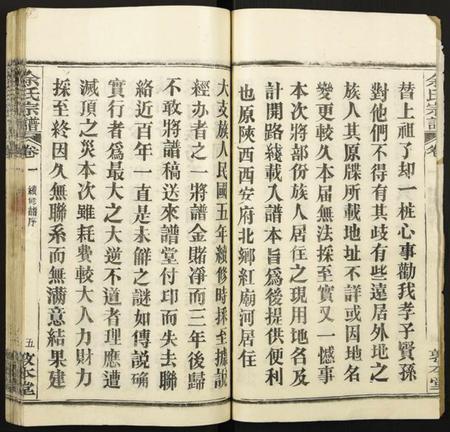 替上祖了却一桩心事勸我孝子賢孫
對他們不得有其歧有些遠居外地之
族人其原牒所載地址不詳或因地名
變更較久本届無法採至實又一憾事
本次將部份族人居住之現用地名及
計開路綫載入譜本旨爲後提供便利
也原陝西西安府北鄉紅廟河居住
大支族人民國五年續修時採至據説
經办者之一將譜金賭淨而三年後歸
不敢將譜稿送來譜堂付印而失去聯
絡近百年一直是未解之謎如傳説确
實行者爲最大之大逆不道者理應遭
滅頂之災本次雖耗費較大人力財力
採至終因久無聯系而無满意結果建
余氏宗譜
卷一
續修譜序
五
敦本堂